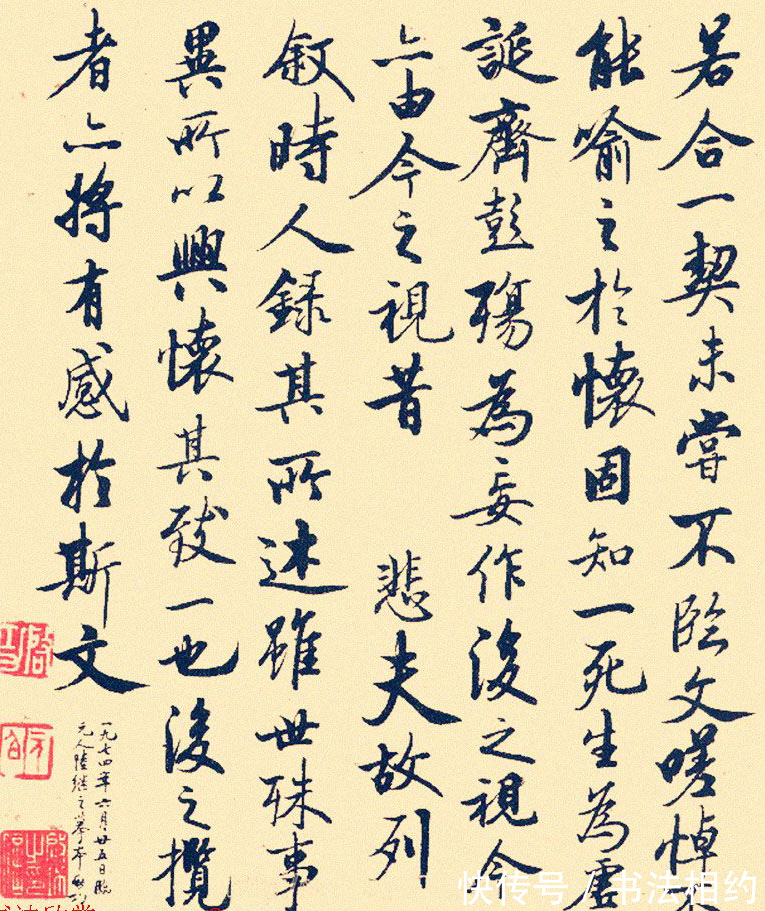 若合一契未嘗不臨文嗟悼不
能喻之於懷固知一死生為虛
誕齊彭殤為妄作後之視今
亦由今之視昔 悲夫故列
敘時人錄其所述雖世殊事
異所以興懷其致一也後之攬
者亦將有感於斯文
一九七四年六月廿五日臨
元人陸繼之摹本
快传号 / 书法相约